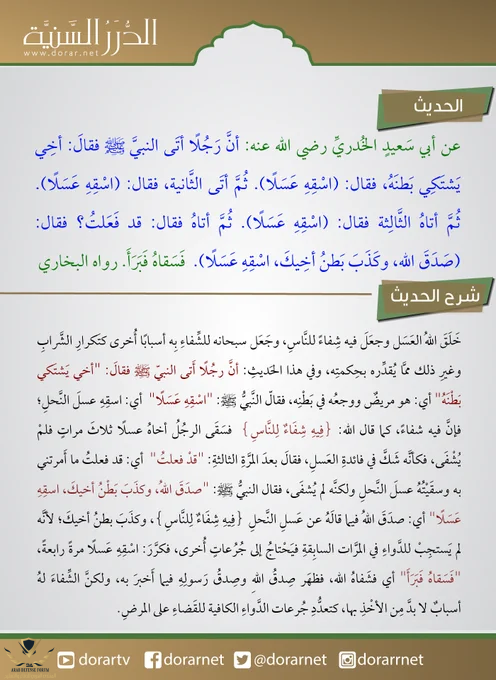 الدُّرَرُ السَّنِيَّة
www.dorar.net
الحديث
عن أبي سَعيدٍ الخُدريِّ رضي الله عنه: أنَّ رَجُلًا أتَى النبيَّ ﷺ فقالَ: أخِي
يَشتَكِي بَطنَهُ، فقال: (اسْقِهِ عَسَلًا). ثُمَّ أتَى الثَّانية، فقال: (اسْقِهِ عَسَلًا).
ثُمَّ أتاهُ الثَّالِثة فقال: (اسْقِهِ عَسَلًا). ثُمَّ أتاهُ فقال: قد فَعَلتُ؟ فقال:
(صَدَقَ الله، وكَذَبَ بَطنُ أخِيكَ، اسْقِهِ عَسَلًا). فَسَقاهُ فَبَرَأَ. رواه البخاري
شرح الحديث
خَلَقَ اللهُ العَسَل وجعلَ فيه شِفاءً للنَّاسِ، وجَعَل سبحانه للشِّفاءِ بِه أسبابًا أُخرى كتَكرارِ الشَّرابِ
وغيرِ ذلك ممَّا يُقدِّره بحِكمتِه، وفي هذا الحَديثِ: أنَّ رجُلًا أتى النبيّ ﷺ فقالَ: "أخي يَشتكي
بَطْنَهُ" أي: هو مريضٌ ووجعُه في بَطْنِه، فقالَ النَّبيُّ ﷺ: "اسْقِهِ عَسَلًا" أي: اسقِهِ عسلَ النَّحلِ؛
فإنَّ فيه شفاءً، كما قال الله: {فِيهِ شِفَاءٌ لِلنَّاسِ} فسَقَى الرجُلُ أخاهُ عسلًا ثلاثَ مراتٍ فلمْ
يُشْفَى، فكأنَّه شَكَّ في فائدةِ العَسلِ، فقالَ بعدَ المرَّةِ الثالثةِ: "قدْ فعلتُ" أي: قد فعلتُ ما أمرتني
به وسقَيْتُهُ عسلَ النَّحلِ ولكنَّه لم يُشفَى، فقال النبيُّ ﷺ: "صدَقَ اللهُ، وكذَبَ بَطْنُ أخيكَ، اسقِهِ
عَسَلًا" أي: صدَقَ اللهُ فيما قالَهُ عن عَسلِ النَّحلِ {فِيهِ شِفَاءٌ لِلنَّاسِ}، وكذَبَ بطنُ أخيكَ؛ لأنَّه
لم يَستجِبْ للدَّواءِ في المرَّات السابقةِ فيَحْتاجُ إلى جُرُعاتٍ أُخرى، فكرَّرَ: اسْقِهِ عَسلًا مرةً رابعةً،
"فَسَقاهُ فَبَرَأَ" أي فشَفاهُ الله، فظَهر صِدقُ اللهِ وصِدقُ رسولِهِ فيما أخبَر به، ولكنَّ الشِّفاءَ لهُ
أسبابٌ لا بدَّ مِن الأخْذِ بها، كتعدُّدِ جُرعات الدَّواءِ الكافية للقَضاءِ على المرضِ.
dorartv dorarnet @dorarnet dorarrnet
ARAB DEFENSE FORUM